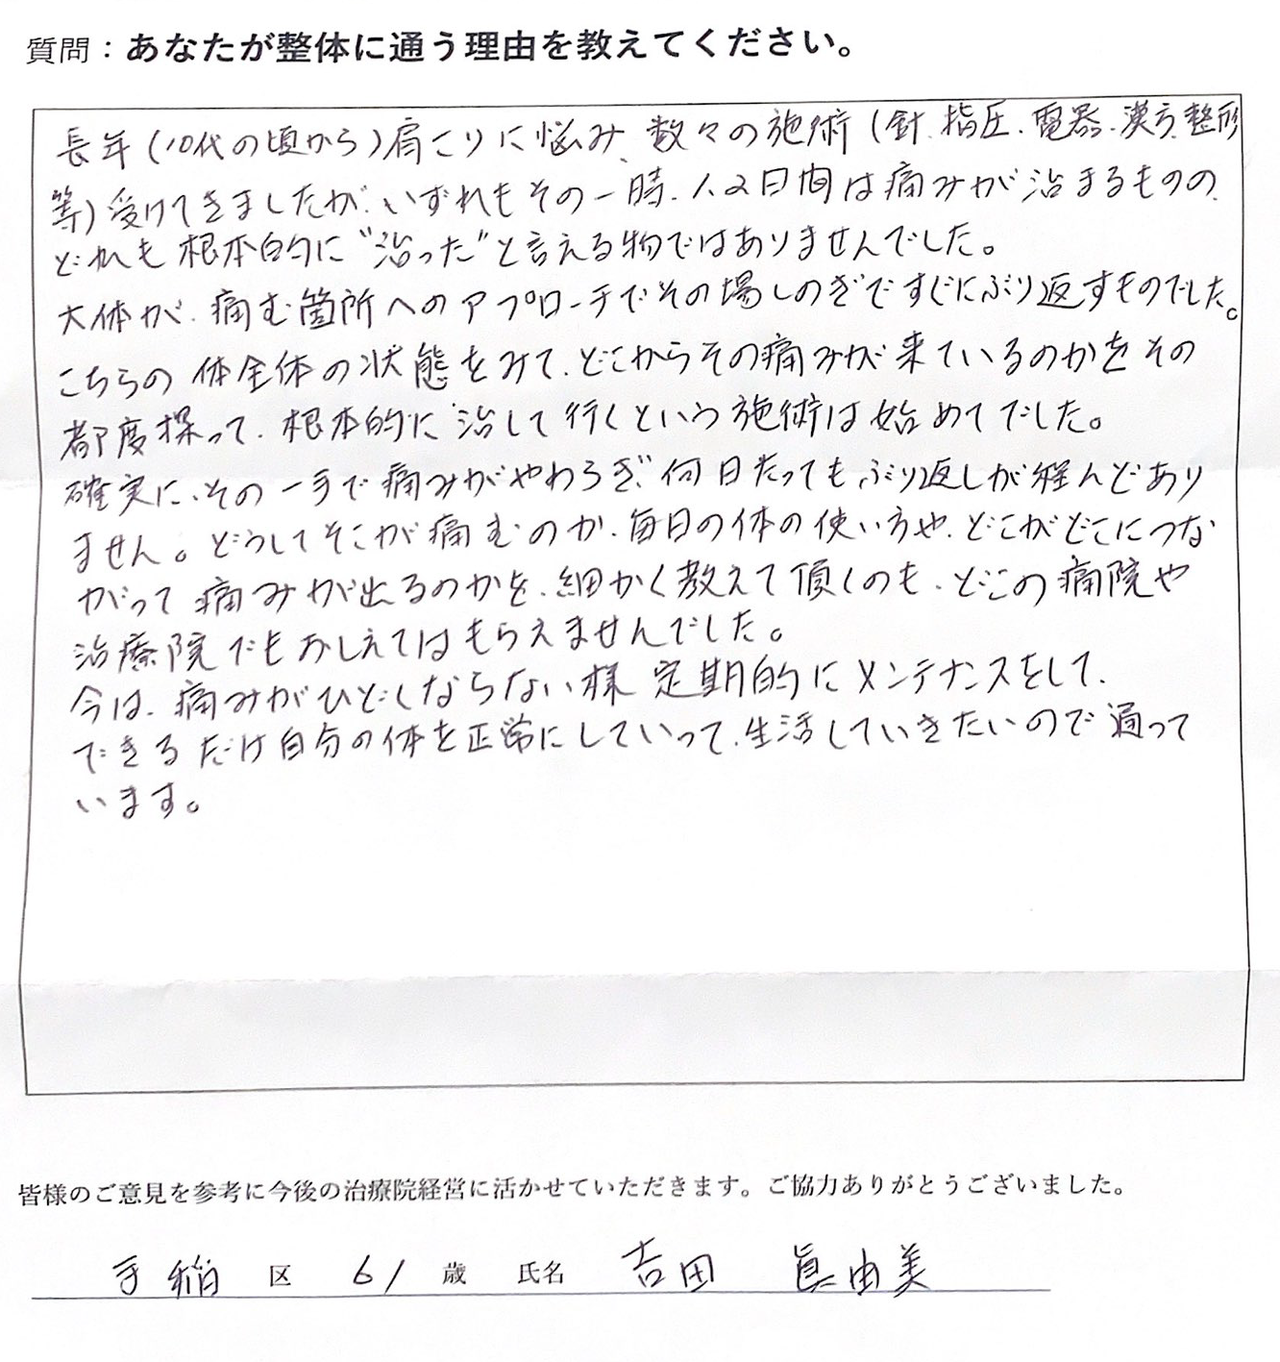 質問：あなたが整体に通う理由を教えてください。
長年(10代の頃から)肩こりに悩み、数々の施術(針、指圧、電器、漢方、整形
等)受けてきましたが、いずれもその一時、1、2日間は痛みが治まるものの、
どれも根本的に“治った”と言える物ではありませんでした。
大体が、痛む箇所へのアプローチでその場しのぎですぐにぶり返すものでした。
こちらの体全体の状態をみて、どこからその痛みが来ているのかをその
都度探って、根本的に治して行くという施術は始めてでした。
確実に、その一手で痛みがやわらぎ、何日たってもぶり返しが殆んどあり
ません。どうしてそこが痛むのか、毎日の体の使い方や、どこがどこにつな
がって痛みが出るのかを、細かく教えて頂くのも、どこの病院や
治療院でもおしえてはもらえませんでした。
今は、痛みがひどくならない様 定期的にメンテナンスをして、
できるだけ自分の体を正常にしていって、生活していきたいので通って
います。
皆様のご意見を参考に今後の治療院経営に活かせていただきます。ご協力ありがとうございました。
手稲 区 61 歳 氏名 吉田 眞由美